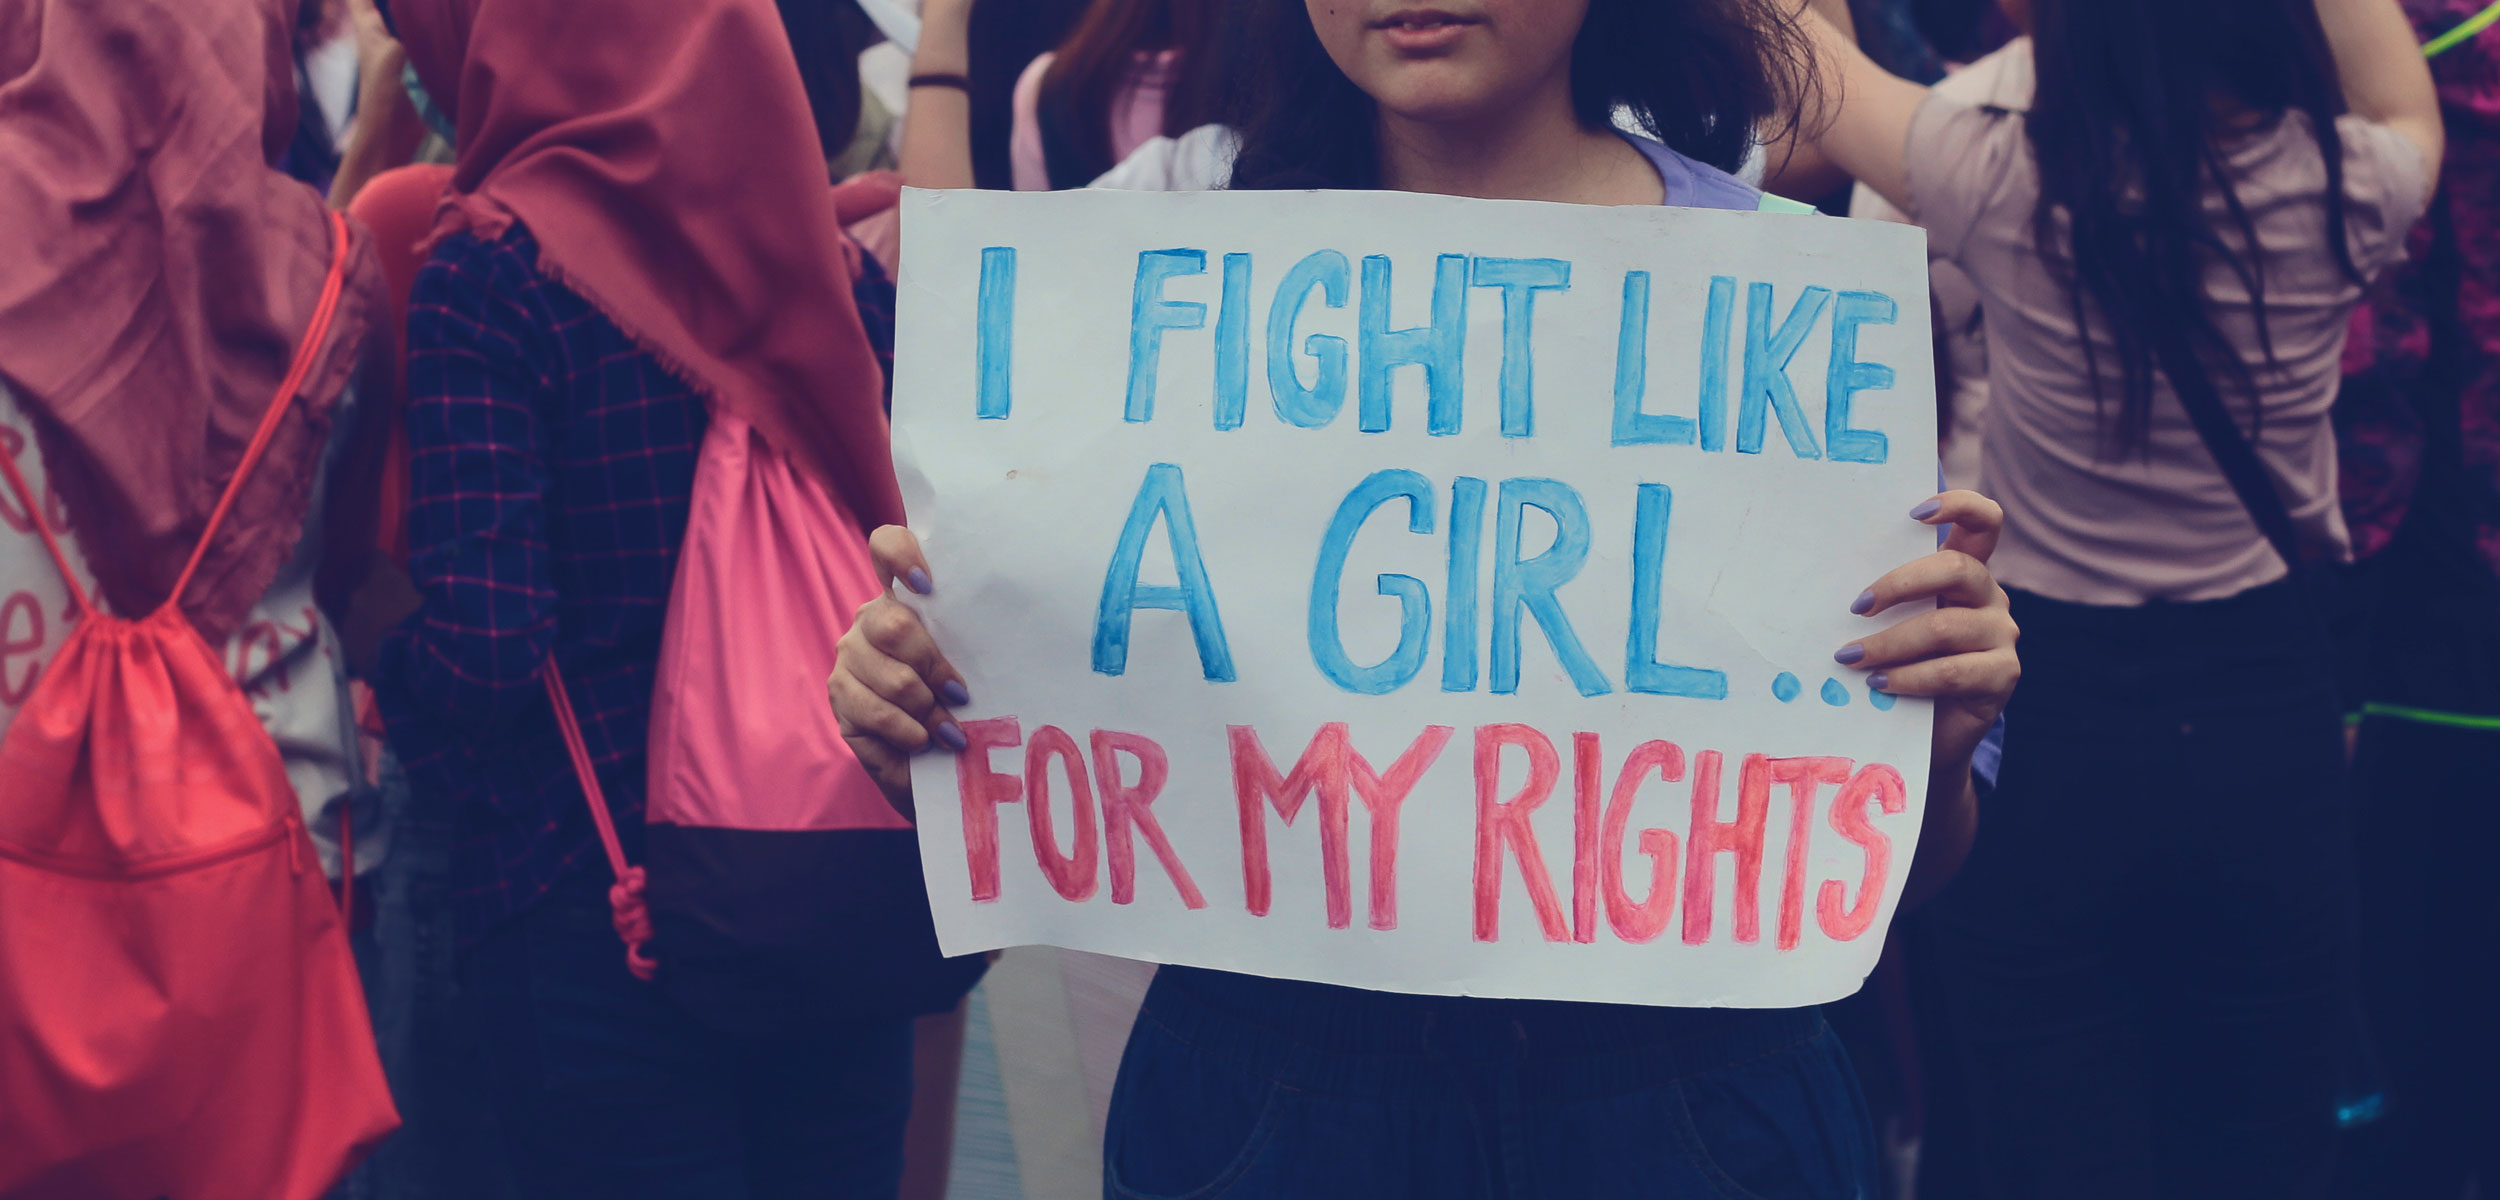 I FIGHT LIKE
A GIRL...
FOR MY RIGHTS